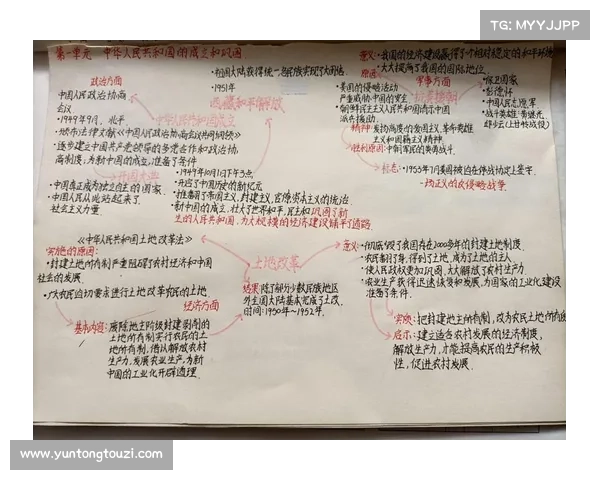 TG: MYYJJPP
第一单元 中华人民共和国的成立和巩固
政治方面
中国人民政治协商
会议
·1949年9月，北平
·颁布法律文献《中国人民政治协商会议共同纲领》
·逐步建立中国共产党领导的多党合作和政治协
商制度，为新中国的成立，准备了条件
中华人民共和国成立
开国大典
·中国真正成为独立自主的国家，
中国人民从此站起来了
社会主义力量
·1949年10月1日下午3点
·开辟了中国历史的新纪元
·推翻了帝国主义，封建主义，官僚资本主义的统治
·新中国的成立，壮大了世界和平，民主和
巩固了新
生的人民共和国，为大规模的经济建设铺平了道路
·祖国大陆获得统一各民族实现了大团结
·1951年
西藏和平解放
意义：·我国的经济建设赢得了个相对稳定的和平环境
·大大提高了我国的国际地位
原因
·美国的侵略活动
严重威胁中国的安全
·朝鲜民主主义人民共和国请求中国
派兵援助
军事方面
抗美援朝
·保卫国家
·彭德怀
·中国人民志愿军
·战斗英雄：黄继光
邱少云(上甘岭战役)
精神：发扬高度的爱国主义，革命英雄
主义和国际主义精神
胜利原因：中朝军民的英勇战斗
标志：·1953年7月美国被迫在停战协定上签字
性质：正义的反侵略战争
《中华人民共和国土地改革法》
实施的原因：
·封建土地所有制严重阻碍了农村经济和中国
社会的发展
·广大农民迫切要求进行土地改革
经济方面
基本内容：废除地主阶级封建剥削的
土地所有制实行农民的土
地所有制，借以解放农村
生产力，发展农业生产，为新
中国的工业化开辟道理
土地改革
结果：除了部分少数民族地区
外全国大陆基本完成了土改
时间：1950年～1952年
意义：·彻底毁了我国存在2000多年的封建土地制度
·农民翻了身，得到了土地，成为了土地的主人
·使人民政权更加巩固，大大解放了农村生产力
·农业生产获得迅速恢复和发展，为国家的工业化建设
准备了条件
实质：把封建地主所有制，改为农民土地所有
启示：建立适合农村发展的经济制度，
解放生产力，才能提高农民的生产积极
性，促进农村发展
www.yuntongtouzi.com